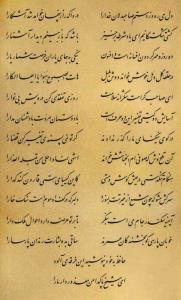 دل می رود ز دستم صاحبدلان خدا را دردا که راز پنهان خواهد شد آشکارا
کشتی شکستگانیم ای باد شرطه برخیز باشد که باز بینیم دیدار آشنا را
ده روزه مهر گردون افسانه است و افسون نیکی بجای یاران فرصت شمار یارا
در حلقه گل و مل خوش خواند دوش بلبل هات الصبوح هبوا یا ایها السکارا
ای صاحب کرامت شکرانه سلامت روزی تفقدی کن درویش بی نوا را
آسایش دو گیتی تفسیر این دو حرفست با دوستان مروت با دشمنان مدارا
در کوی نیکنامی ما را گذر ندادند گر تو نمی پسندی تغییر کن قضا را
آن تلخ وش که صوفی ام الخبائثش خواند اشهی لنا و احلی من قبلة العذارا
هنگام تنگدستی در عیش کوش و مستی کاین کیمیای هستی قارون کند گدا را
سرکش مشو که چون شمع از غیرتت بسوزد دلبر که در کف او موم است سنگ خارا
آیینه سکندر جام می است بنگر تا بر تو عرضه دارد احوال ملک دارا
خوبان پارسی گو بخشندگان عمرند ساقی بده بشارت رندان پارسا را
حافظ به خود نپوشید این خرقه می آلود
ای شیخ پاکدامن معذور دار ما را